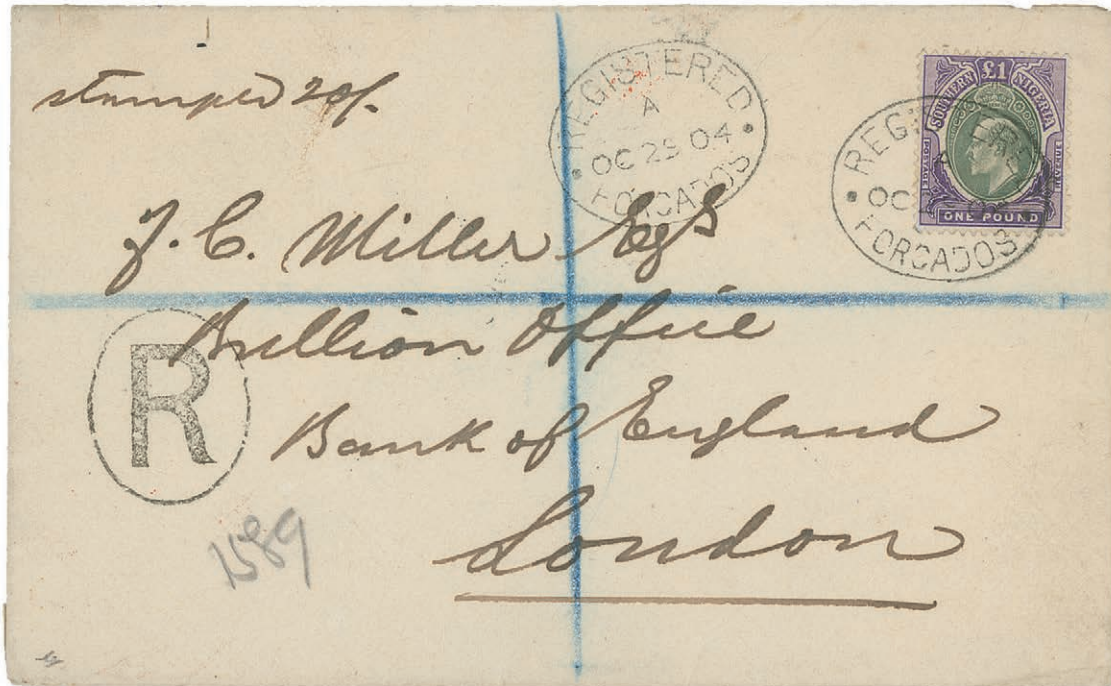 stamped 20/-
REGISTERED
A
OC 25 04
FORCADOS
£1
SOUTHERN NIGERIA
POSTAGE
ONE POUND
REGI
OC
FORCADOS
J. C. Miller Esqs
Bullion Office
Bank of England
London
R
1589